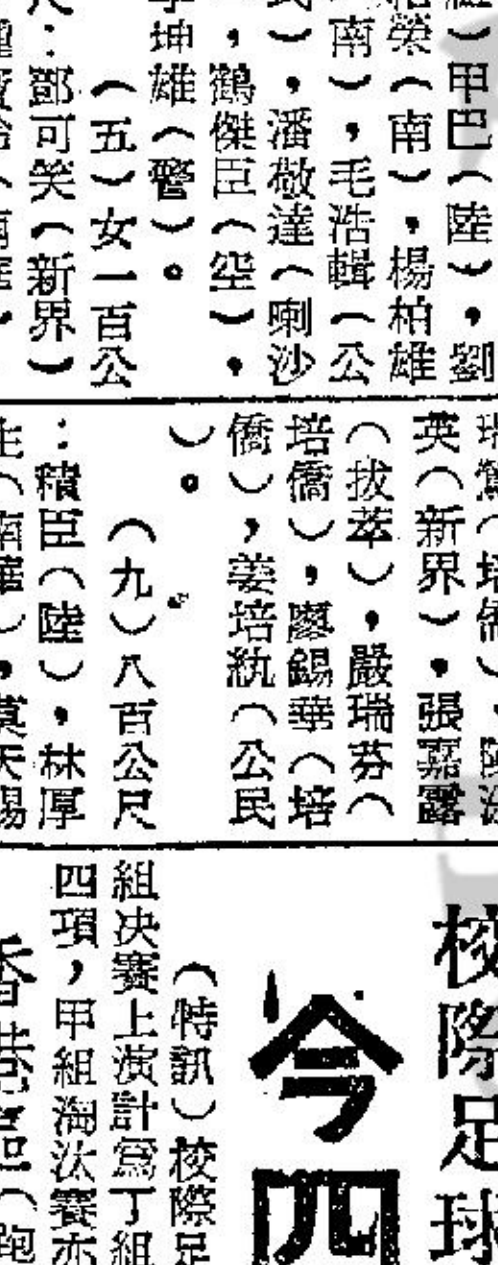 甲巴（陸），劉
榮（南），楊柏雄
南），毛浩輯（公
），潘敬達（喇沙
，鶴傑臣（空），
坤雄（警）。
（五）女一百公
：鄧可笑（新界）
英（新界），張嘉露
（拔萃），嚴瑞芬（
培僑），廖錫華（培
僑），姜培紈（公民
）。
（九）八百公尺
：積臣（陸），林厚
（南華），莫天賜
校際足球
今四
（特訊）校際足
組决賽上演計為丁組
四項，甲組淘汰賽亦
香港
（跑